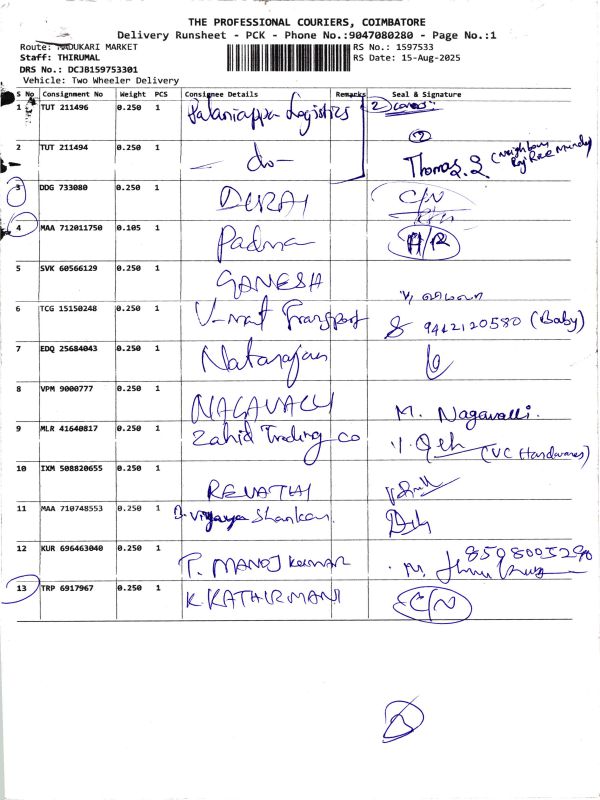 THE PROFESSIONAL COURIERS, COIMBATORE
Delivery Runsheet - PCK - Phone No.:9047080280 - Page No.:1
Route: MADUKARI MARKET
RS No.: 1597533
Staff: THIRUMAL
RS Date: 15-Aug-2025
DRS No.: DCJB159753301
Vehicle: Two Wheeler Delivery
S No Consignment No Weight PCS Consignee Details Remarks Seal & Signature
1 TUT 211496 0.250 1 Palaniappa Logistics 2 covers
2
2 TUT 211494 0.250 1 - do - Thomas (Neighbour
3 DDG 733080 0.250 1 DURAI C/N
4 MAA 712011750 0.105 1 Padma A/R
5 SVK 60566129 0.250 1 GANESH
6 TCG 15150248 0.250 1 V-mat Transport 9442120580 (Baby)
7 EDQ 25684043 0.250 1 Natarajan
8 VPM 9000777 0.250 1 NAGAVALLI M. Nagavalli.
9 MLR 41640817 0.250 1 Zahid Trading Co (VC Hardwares)
10 IXM 508820655 0.250 1 REVATHI
11 MAA 710748553 0.250 1 D. Vijaya Shankar.
12 KUR 696463040 0.250 1 T. MANOJ KUMAR 8598005290
13 TRP 6917967 0.250 1 K. KATHIRMANI C/N